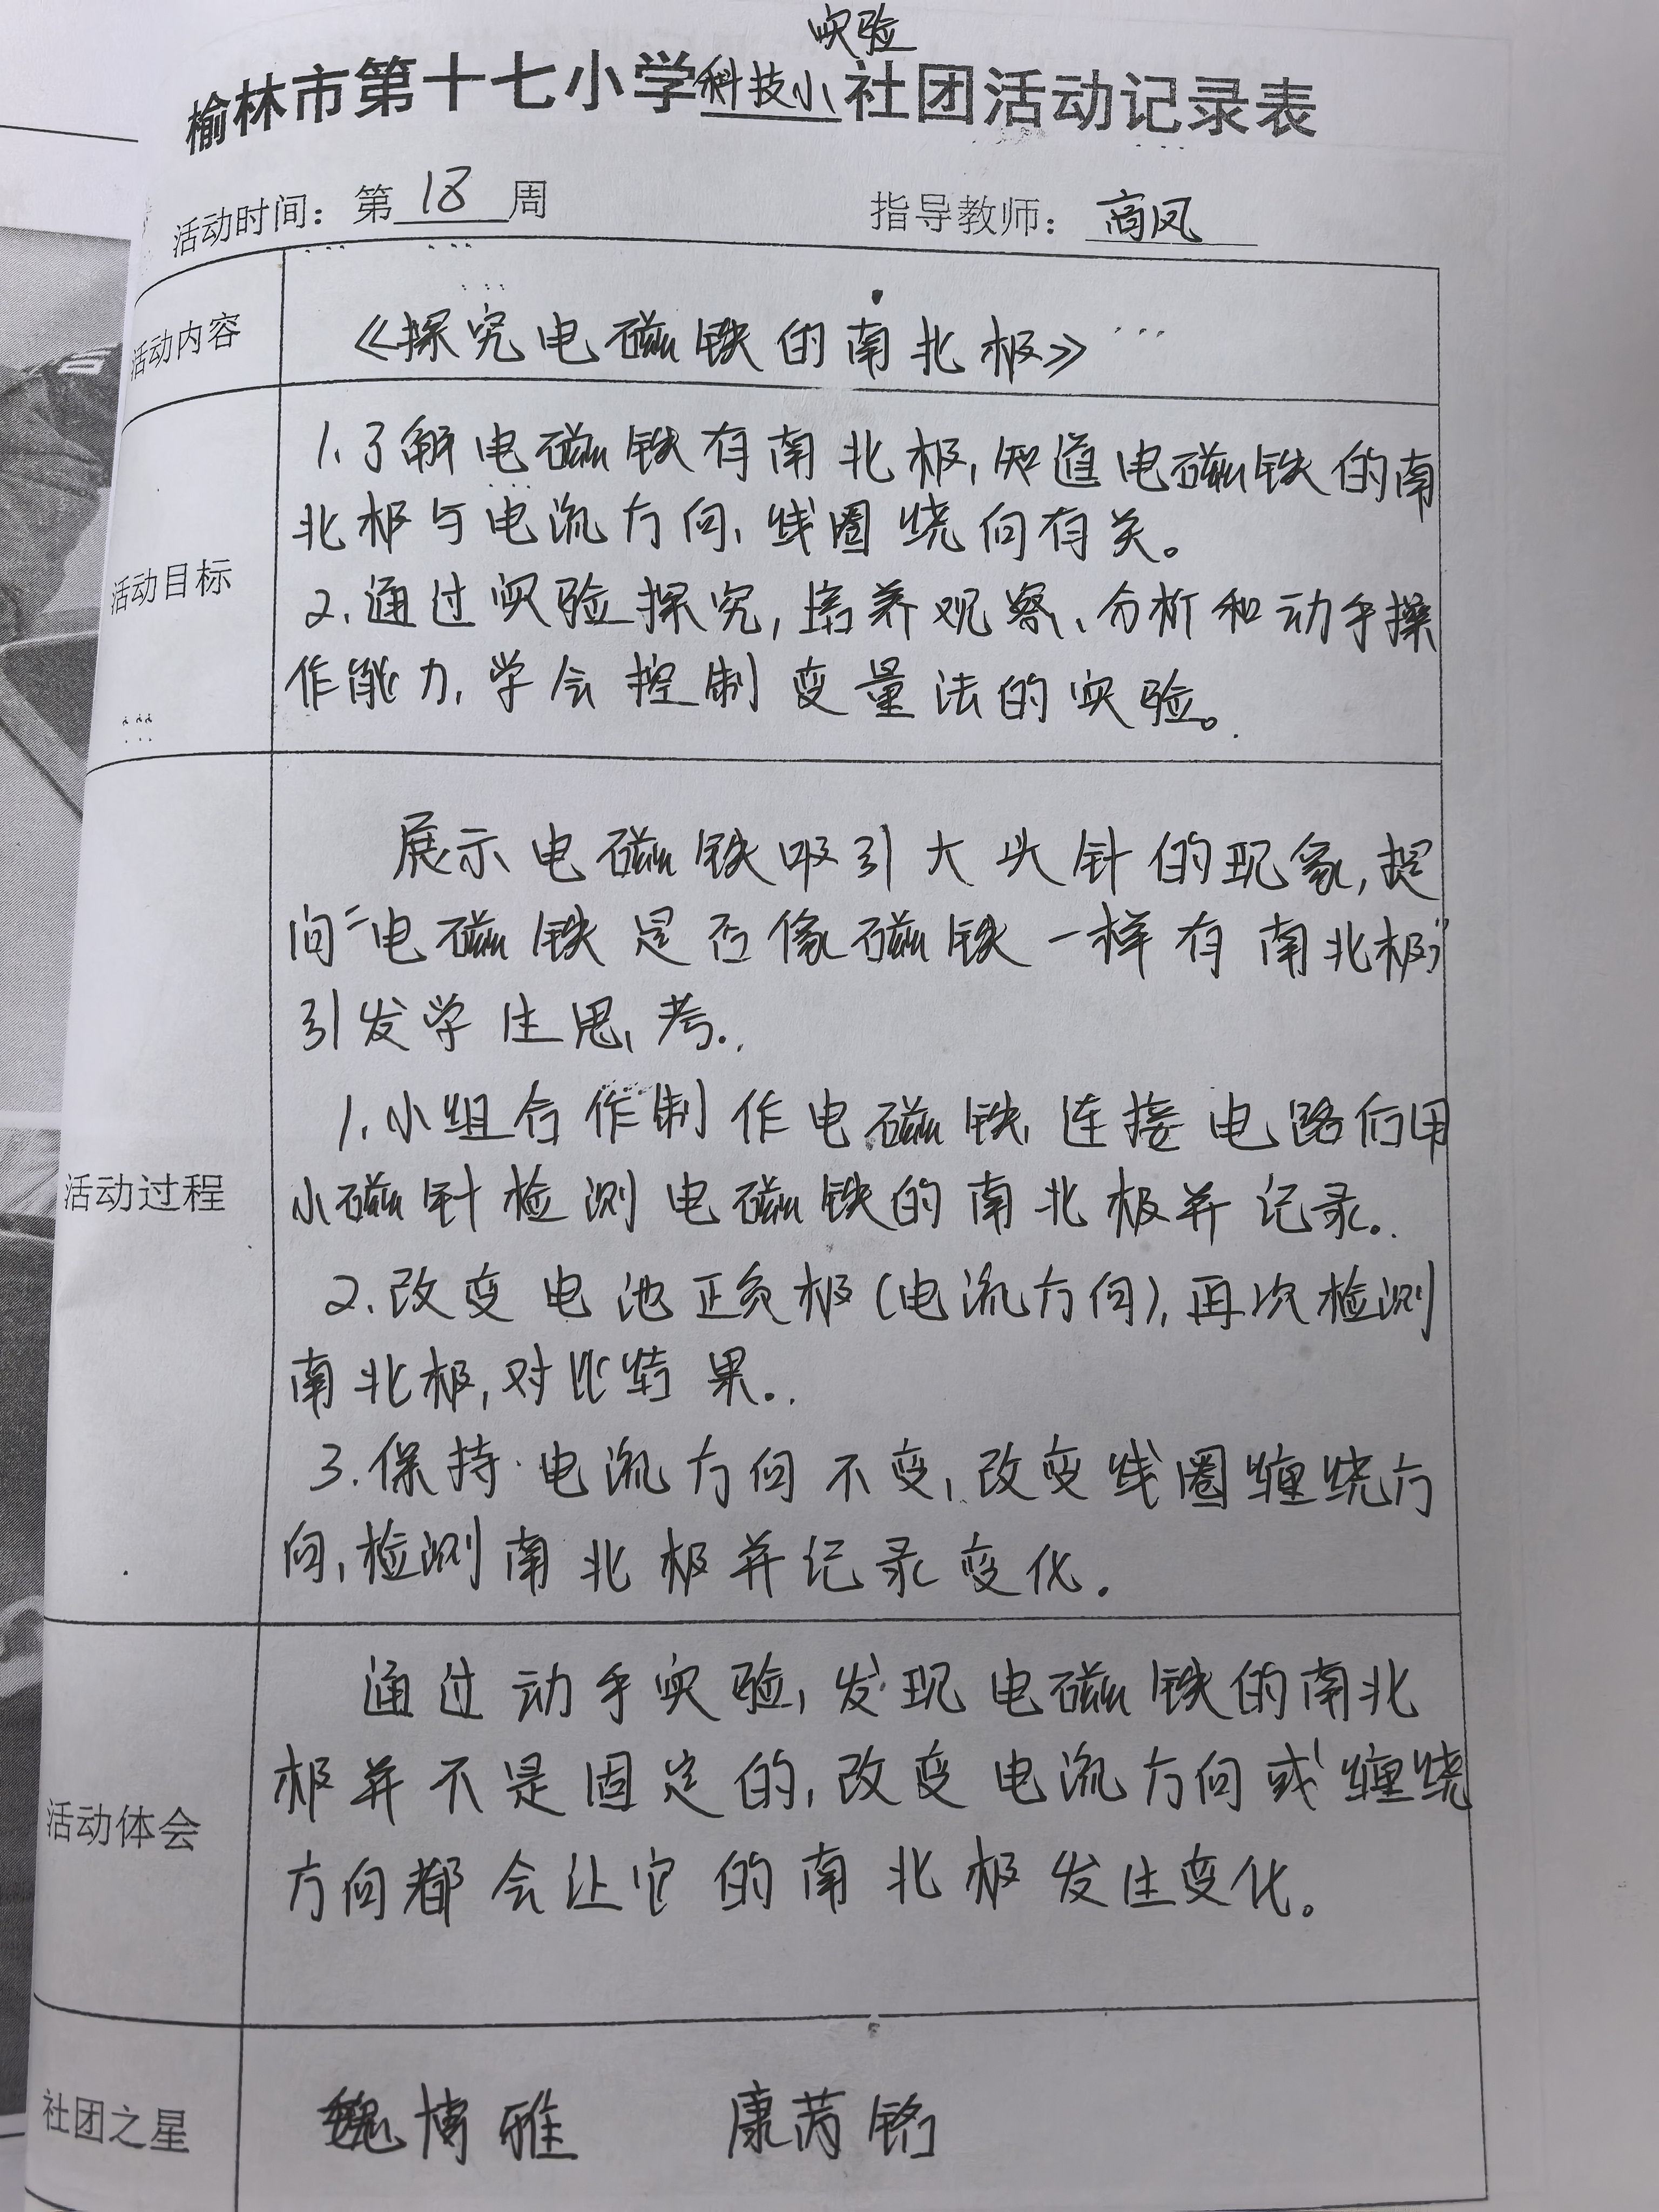 榆林市第十七小学科技小实验社团活动记录表
活动时间：第18周 指导教师：商凤
活动内容
《探究电磁铁的南北极》
活动目标
1.了解电磁铁有南北极,知道电磁铁的南
北极与电流方向、线圈绕向有关。
2.通过实验探究,培养观察、分析和动手操
作能力,学会控制变量法的实验。
活动过程
展示电磁铁吸引大头针的现象,提
问“电磁铁是否像磁铁一样有南北极”
引发学生思考.
1.小组合作制作电磁铁,连接电路后用
小磁针检测电磁铁的南北极并记录.
2.改变电池正负极(电流方向),再次检测
南北极,对比结果.
3.保持电流方向不变,改变线圈缠绕方
向,检测南北极并记录变化.
活动体会
通过动手实验,发现电磁铁的南北
极并不是固定的,改变电流方向或缠绕
方向都会让它的南北极发生变化。
社团之星
魏博雅 康芮铭